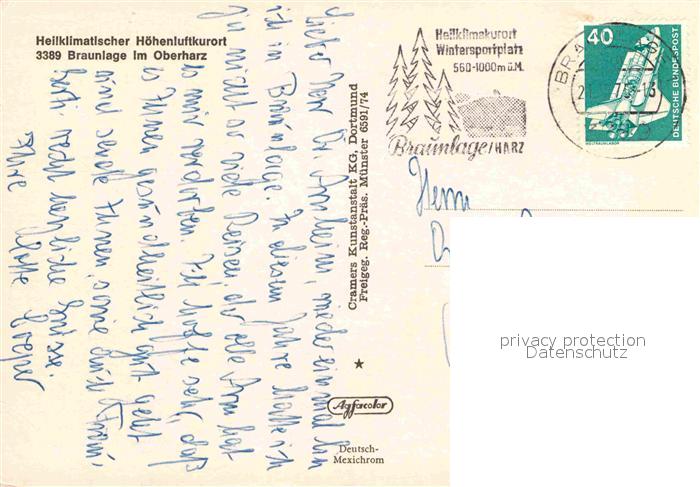 Heilklimatischer Höhenluftkurort
3389 Braunlage im Oberharz
Lieber Herr Dr. wieder einmal bin
ich in Braunlage. In diesem Jahre hatte ich
ja nicht so viele Reisen, der alte Arm hat
es mir verdorben. Ich hoffe sehr, daß
es Ihnen gesundheitlich gut geht
und sende Ihnen, sowie Ihrer Frau,
recht herzliche Grüsse.
Ihre
Cramers Kunstanstalt KG, Dortmund
Freigeg. Reg.-Präs. Münster 6591/74
Agfacolor
Deutsch-
Mexichrom
Heilklimakurort
Wintersportplatz
560-1000m ü.M.
Braunlage/HARZ
40
DEUTSCHE BUNDESPOST
WELTRAUMLABOR
Herrn
privacy protection
Datenschutz